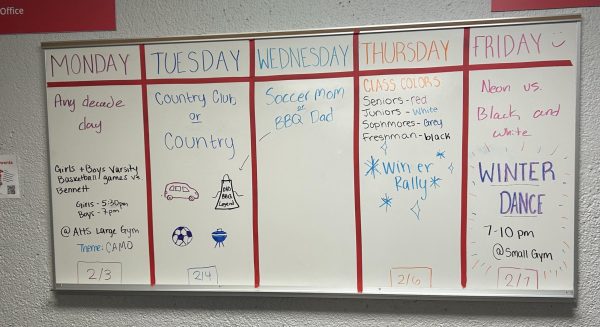 Office
MONDAY
Any decade
day
Girls + Boys Varsity
Basketball games vs
Bennett
Girls - 5:30pm
Boys - 7pm
@AHS Large Gym
Theme: CAMO
2/3
TUESDAY
Country Club
or
Country
BBQ
Legend
2/4
WEDNESDAY
Soccer Mom
or
BBQ Dad
THURSDAY
CLASS COLORS
Seniors - red
Juniors - White
Sophmores - Grey
Freshman - black
Winter
Rally
2/6
FRIDAY
Neon vs.
Black and
white
WINTER
DANCE
7-10 pm
@Small Gym
2/7